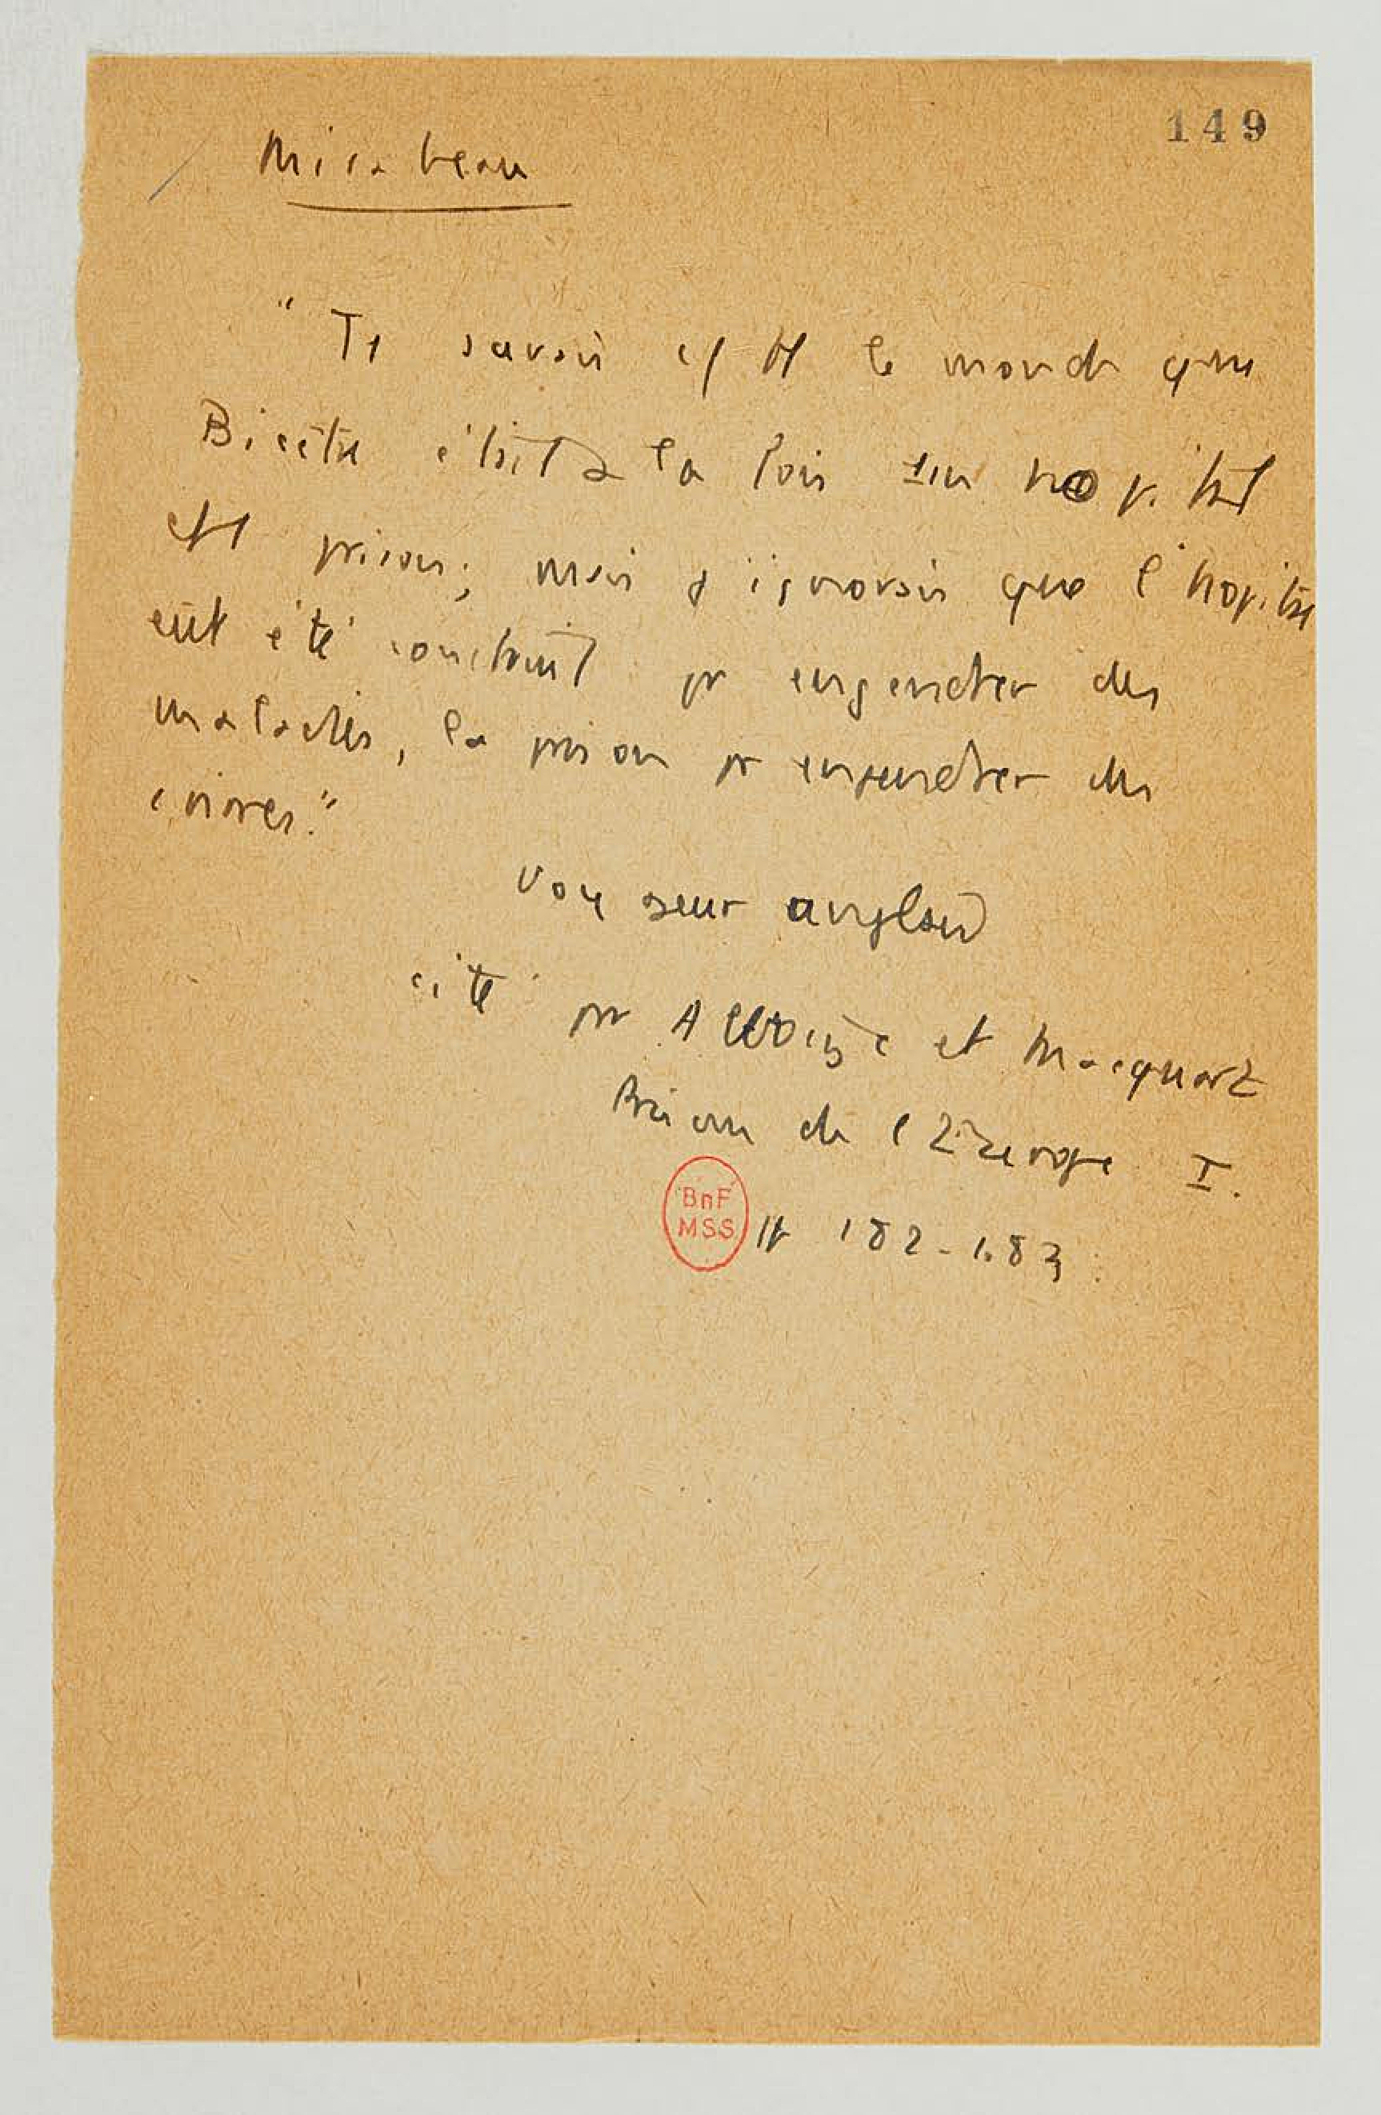 149
Mirabeau
" Je savais c/ tt le monde que
Bicêtre était à la fois un hopital
et prison; mais j'ignorais que l'hopital
eût été construit pr engendrer des
maladies, la prison pr engendrer des
crimes."
Voyageur anglais
cité par Alboize et Macquart
Prison de l'Europe I.
BnF
MSS
pp 182-183.